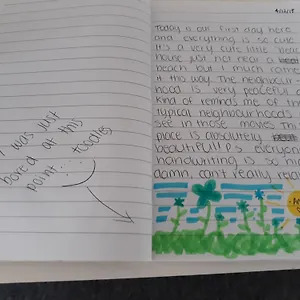 I was just
bored at this
point... toodles
Today is our first day here
and everything is so cute.
It's a very cute little beach
house just not near a
beach but I much rather
it this way. The neighbour-
hood is very peaceful
kind of reminds me of th
typical neighbourhoods
see in those movies. This
place is absolutely
beautiful!! P.S everyone
handwriting is so
damn. can't really read